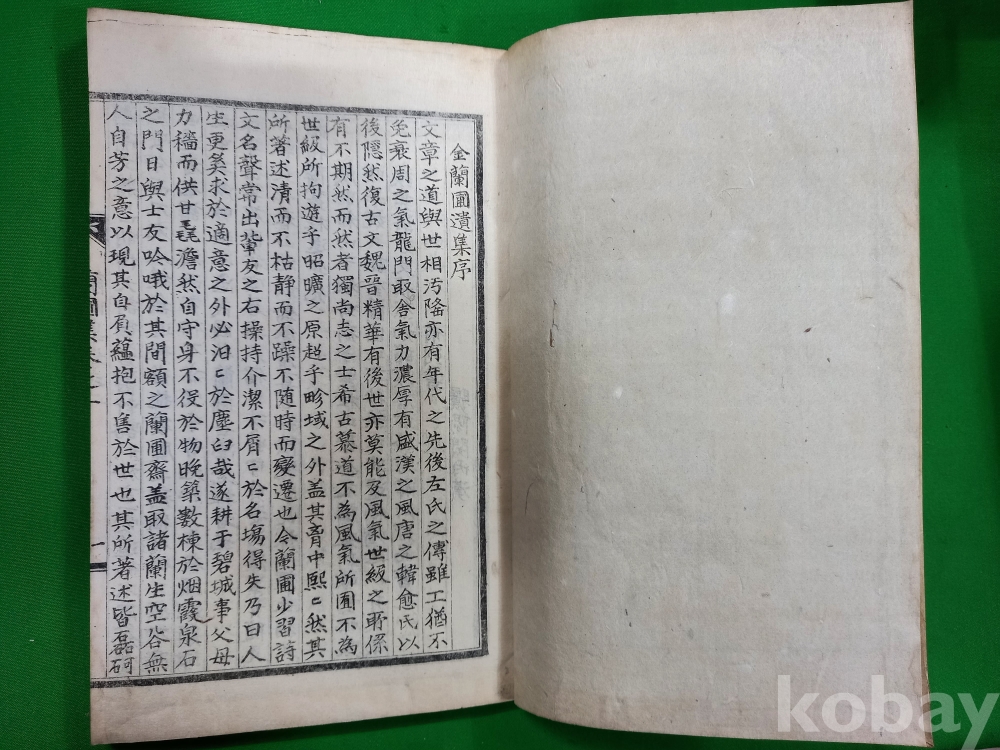 金蘭圃遺集序
文章之道與世相汚隆亦有年代之先後左氏之傳雖工猶不
免衰周之氣龍門取舍氣力濃厚有盛漢之風唐之韓愈氏以
後隱然復古文魏晉精華有後世亦莫能及風氣世級之所係
有不期然而然者獨尚志之士希古慕道不為風氣所囿不為
世級所拘遊乎昭曠之原超乎畛域之外盖其胷中熙〻然其
所著述清而不枯静而不躁不隨時而變遷也今蘭圃少習詩
文名聲常出輩友之右操持介潔不屑〻於名塲得失乃曰人
生更奚求於適意之外必汩〻於塵臼哉遂耕于碧城事父母
力穡而供甘毳澹然自守身不役於物晩築數棟於烟霞泉石
之門日與士友吟哦於其間額之蘭圃齋盖取諸蘭生空谷無
人自芳之意以現其自屓蘊抱不售於世也其所著述皆磊砢
蘭圃集卷之一
一
kobay